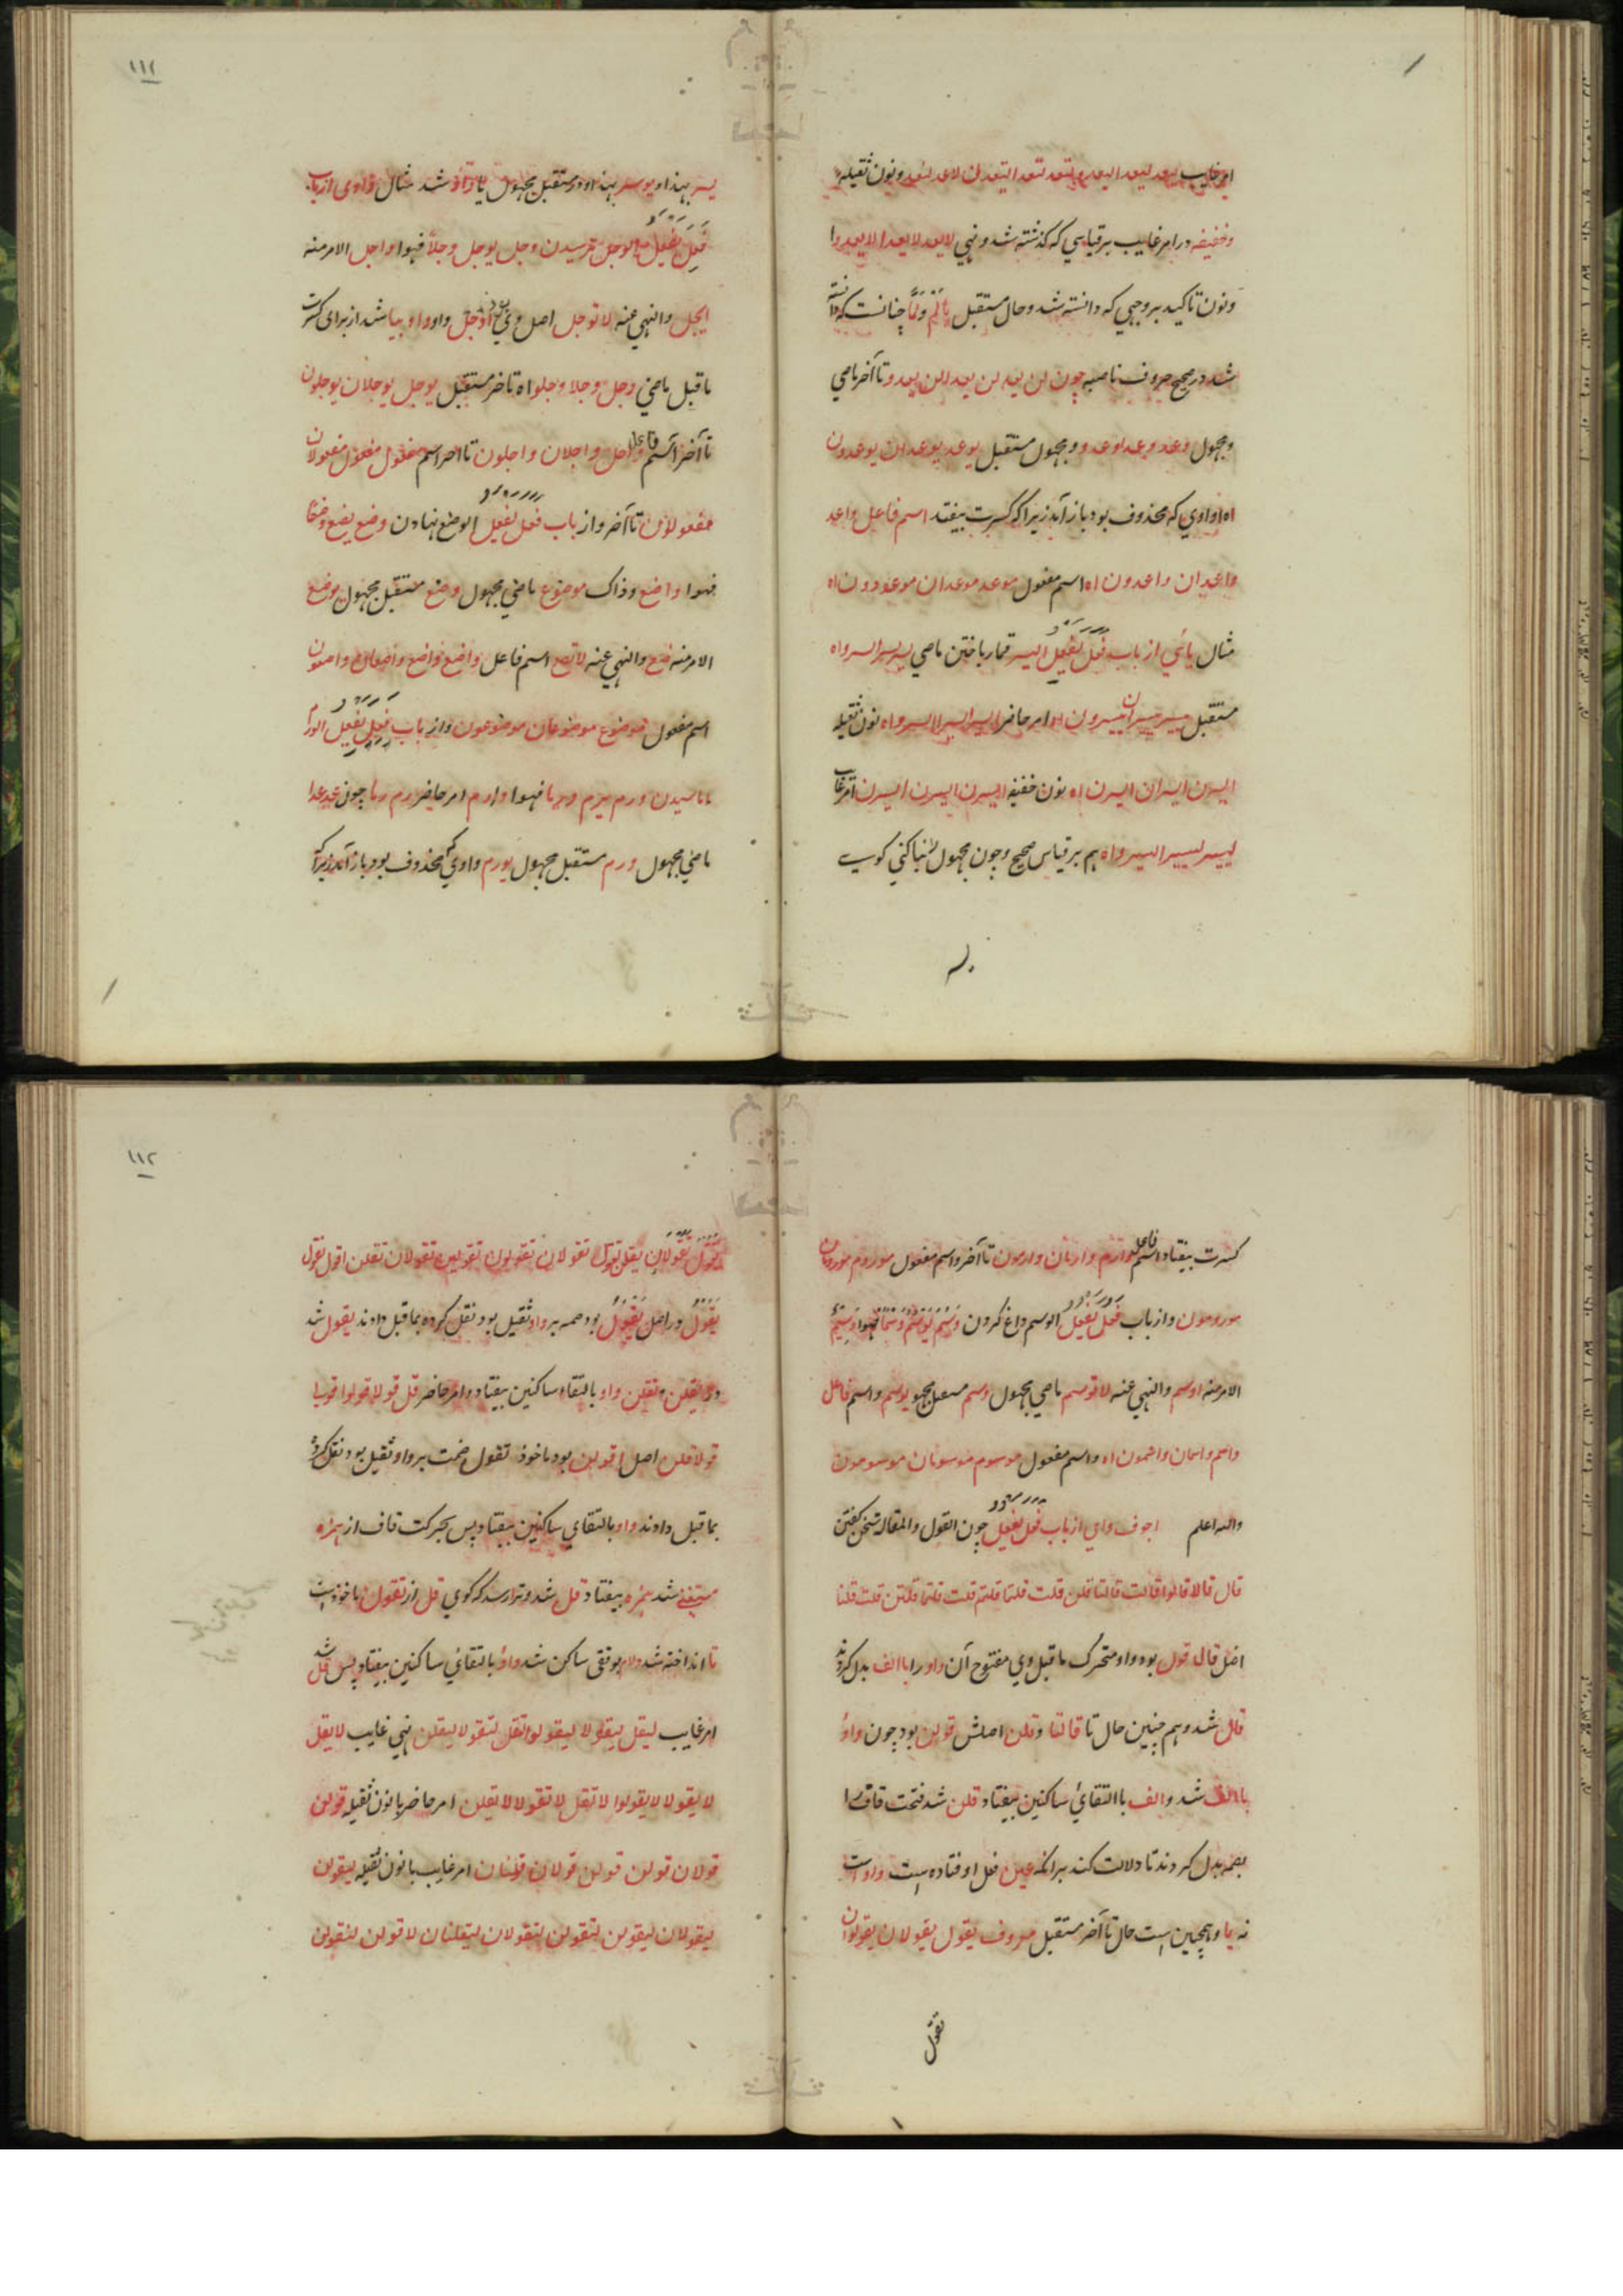 امر غایب لیعد لیعدا لیعدوا لتعد لتعدا لیعدن لاعد لنعد و نون ثقیله
و خفیفه در امر غایب بر قیاسی که گذشته شد و نهی لا یعد لا یعدا لا یعدوا
و نون تاکید بر وجهی که دانسته شد و حال مستقبل با لم و لما چنانست که دانسته
شد در صحیح حروف ناصبه چون لن یعد لن یعدا لن یعدوا تا آخر ماضی
مجهول وعد وعدا وعدوا و مجهول مستقبل یوعد یوعدان یوعدون
اه واوی که محذوف بود باز آمد زیرا که کسرت بیفتد اسم فاعل واعد
واعدان واعدون اه اسم مفعول موعد موعدان موعودون اه
مثال یائی از باب فعل یفعل الیسر قمار باختن ماضی یسر یسرا یسروا اه
مستقبل ییسر ییسران ییسرون اه امر حاضر ایسر ایسرا ایسروا اه نون ثقیله
ایسرن ایسران ایسرن اه نون خفیفه ایسرن ایسرن ایسرن امر غایب
لییسر لییسرا لییسروا اه هم بر قیاس صحیح و چون مجهول بنا کنی کویی
یسر
یسر بهذا و یوسر بهذا و در مستقبل مجهول یا واو شد مثال واوی از باب
فعل یفعل الوجل ترسیدن وجل یوجل وجلا فهوا واجل الامر منه
ایجل والنهی عنه لا توجل اصل وی اوجل بود واو بیا شد از برای کسرت
ماقبل ماضی وجل وجلا وجلوا اه تا آخر مستقبل یوجل یوجلان یوجلون
تا آخر اسم فاعل واجل واجلان واجلون تا آخر اسم مفعول مفعول مفعولان
مفعولون تا آخر و از باب فعل یفعل الوضع نهادن وضع یضع وضعا
فهوا واضع وذاک موضوع ماضی مجهول وضع مستقبل مجهول یوضع
الامر منه ضع والنهی عنه لا تضع اسم فاعل واضع واضع واضعان واضعون
اسم مفعول موضوع موضوعان موضوعون و از باب فعل یفعل الورم
آماسیدن ورم یرم ورما فهوا وارم امر حاضر رم رما چون عد عدا
ماضی مجهول ورم مستقبل مجهول یورم واوی که محذوف بود باز آمد زیرا که
کسرت بیفتاد اسم فاعل وارم وارمان وارمون تا آخر و اسم مفعول موروم مورومان
مورومون و از باب فعل یفعل الوسم داغ کردن وسم یوسم وسما فهوا وسیم
الامر منه اوسم والنهی عنه لا توسم ماضی مجهول وسم مستقبل مجهول یوسم و اسم فاعل
واسم واسمان واسمون اه و اسم مفعول موسوم موسومان موسومون
والله اعلم اجوف واوی از باب فعل یفعل چون القول والمقالة سخن گفتن
قال قالا قالوا قالت قالتا قلن قلت قلتما قلتم قلت قلتما قلتن قلت قلنا
اصل قال قول بود واو متحرک ماقبل وی مفتوح آن واو را با الف بدل کردند
قال شد و هم چنین حال تا قالتا و قلن اصلش قولن بود چون واو
با الف شد و الف با التقای ساکنین بیفتاد قلن شد فتحت قاف را
بضمه بدل کردند تا دلالت کند برانکه عین فعل او فتاده است واو است
نه یا و همچنین است حال تا آخر مستقبل معروف یقول یقولان یقولون
تقول
تقول تقولان یقلن تقول تقولان تقولون تقولین تقولان تقلن اقول نقول
یقول در اصل یقول بود ضمه بر واو ثقیل بود نقل کرده بماقبل دادند یقول شد
در یقلن و تقلن واو بالتقاء ساکنین بیفتاد و امر حاضر قل قولا قولوا قولی
قولا قلن اصل اقولن بود ماخوذ تقول ضمت بر واو ثقیل بود نقل کرده
بماقبل دادند واو بالتقای ساکنین بیفتاد پس بحرکت قاف از همزه
مستغنی شد همزه بیفتاد قل شد و ترا رسد که کوی قل از تقول ماخوذست
تا انداخته شد و لام بوقفی ساکن شد واو بالتقای ساکنین بیفتاد پس قل شد
امر غایب لیقل لیقولا لیقولوا لتقل لتقولا لیقلن نهی غایب لا یقل
لا یقولا لا یقولوا لا تقل لا تقولا لا یقلن امر حاضر با نون ثقیله قولن
قولان قولن قولن قولان قلنان امر غایب با نون ثقیله لیقولن
لیقولان لیقولن لتقولن لتقولان لیقلنان لاقولن لنقولن
١١١
١١٢